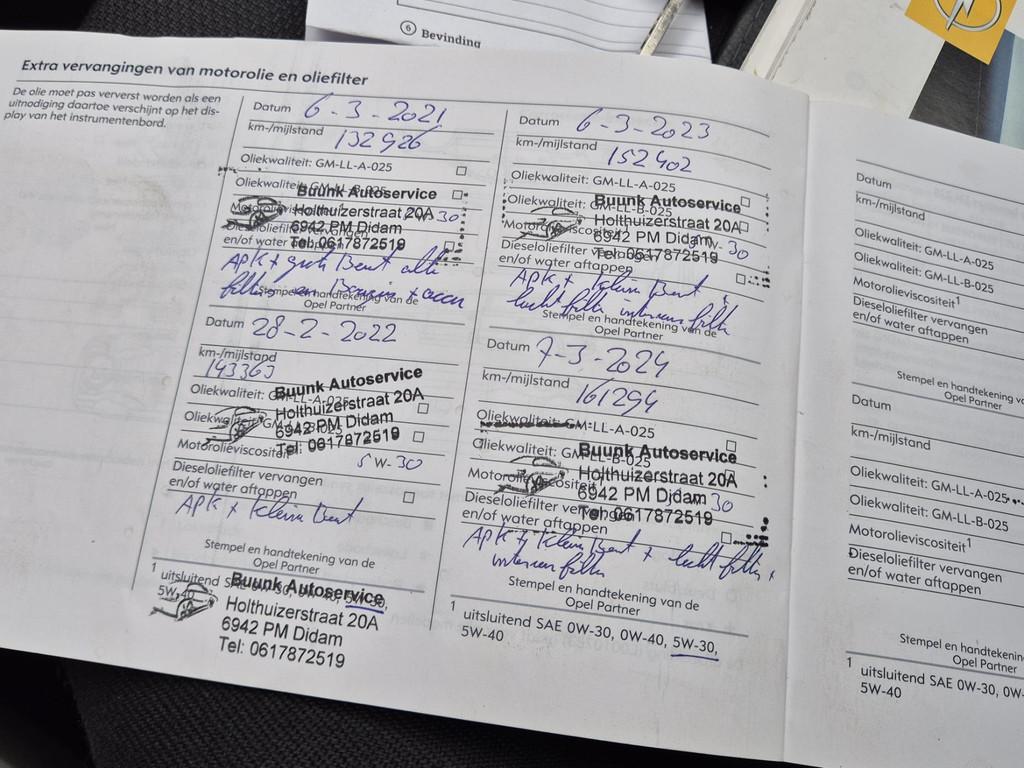 6 Bevinding
Extra vervangingen van motorolie en oliefilter
De olie moet pas ververst worden als een
uitnodiging daartoe verschijnt op het dis-
play van het instrumentenbord.
Datum 6-3-2021
km-/mijlstand
132926
Oliekwaliteit: GM-LL-A-025
Buunk Autoservice
Holthuizerstraat 20A
6942 PM Didam
Tel: 0617872519
30
en/of water
APK + groh Beurt olie
filter Benzin + accu
Stempel en handtekening van de
Opel Partner
Datum 28-2-2022
km-/mijlstand
Oliekwaliteit: GM-LL-A-025
Buunk Autoservice
Holthuizerstraat 20A
6942 PM Didam
Tel: 0617872519
Motorolieviscositeit 5W-30
Dieseloliefilter vervangen
en/of water aftappen
APK + klein Beurt
Stempel en handtekening van de
Opel Partner
1 uitsluitend SAE 0W-30, 0W-40, 5W-30,
5W-40
Buunk Autoservice
Holthuizerstraat 20A
6942 PM Didam
Tel: 0617872519
Datum 6-3-2023
km-/mijlstand
152402
Oliekwaliteit: GM-LL-A-025
Oliekwaliteit: GM-LL-B-025
Buunk Autoservice
Holthuizerstraat 20A
6942 PM Didam
Tel: 0617872519
Motorolieviscositeit W-30
Dieseloliefilter vervangen
en/of water aftappen
APK + klein Beurt +
lucht filter interieur filter
Stempel en handtekening van de
Opel Partner
Datum 7-3-2024
km-/mijlstand
161294
Oliekwaliteit: GM-LL-A-025
Oliekwaliteit: GM-LL-B-025
Buunk Autoservice
Holthuizerstraat 20A
6942 PM Didam
Tel: 0617872519
Motorolieviscositeit 30
Dieseloliefilter vervangen
en/of water aftappen
APK + klein Beurt + lucht filter +
interieur filter
Stempel en handtekening van de
Opel Partner
1 uitsluitend SAE 0W-30, 0W-40, 5W-30,
5W-40
Datum
km-/mijlstand
Oliekwaliteit: GM-LL-A-025
Oliekwaliteit: GM-LL-B-025
Motorolieviscositeit1
Dieseloliefilter vervangen
en/of water aftappen
Stempel en handtekening
Opel Partner
Datum
km-/mijlstand
Oliekwaliteit: GM-LL-A-025
Oliekwaliteit: GM-LL-B-025
Motorolieviscositeit1
Dieseloliefilter vervangen
en/of water aftappen
Stempel en handtekening
Opel Partner
1 uitsluitend SAE 0W-30,
5W-40